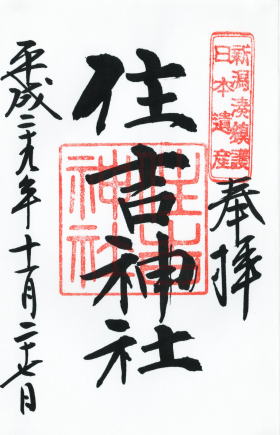 新潟湊鎮護
日本遺産
奉拝
住吉神社
住吉神社
平成二十九年十一月二十七日